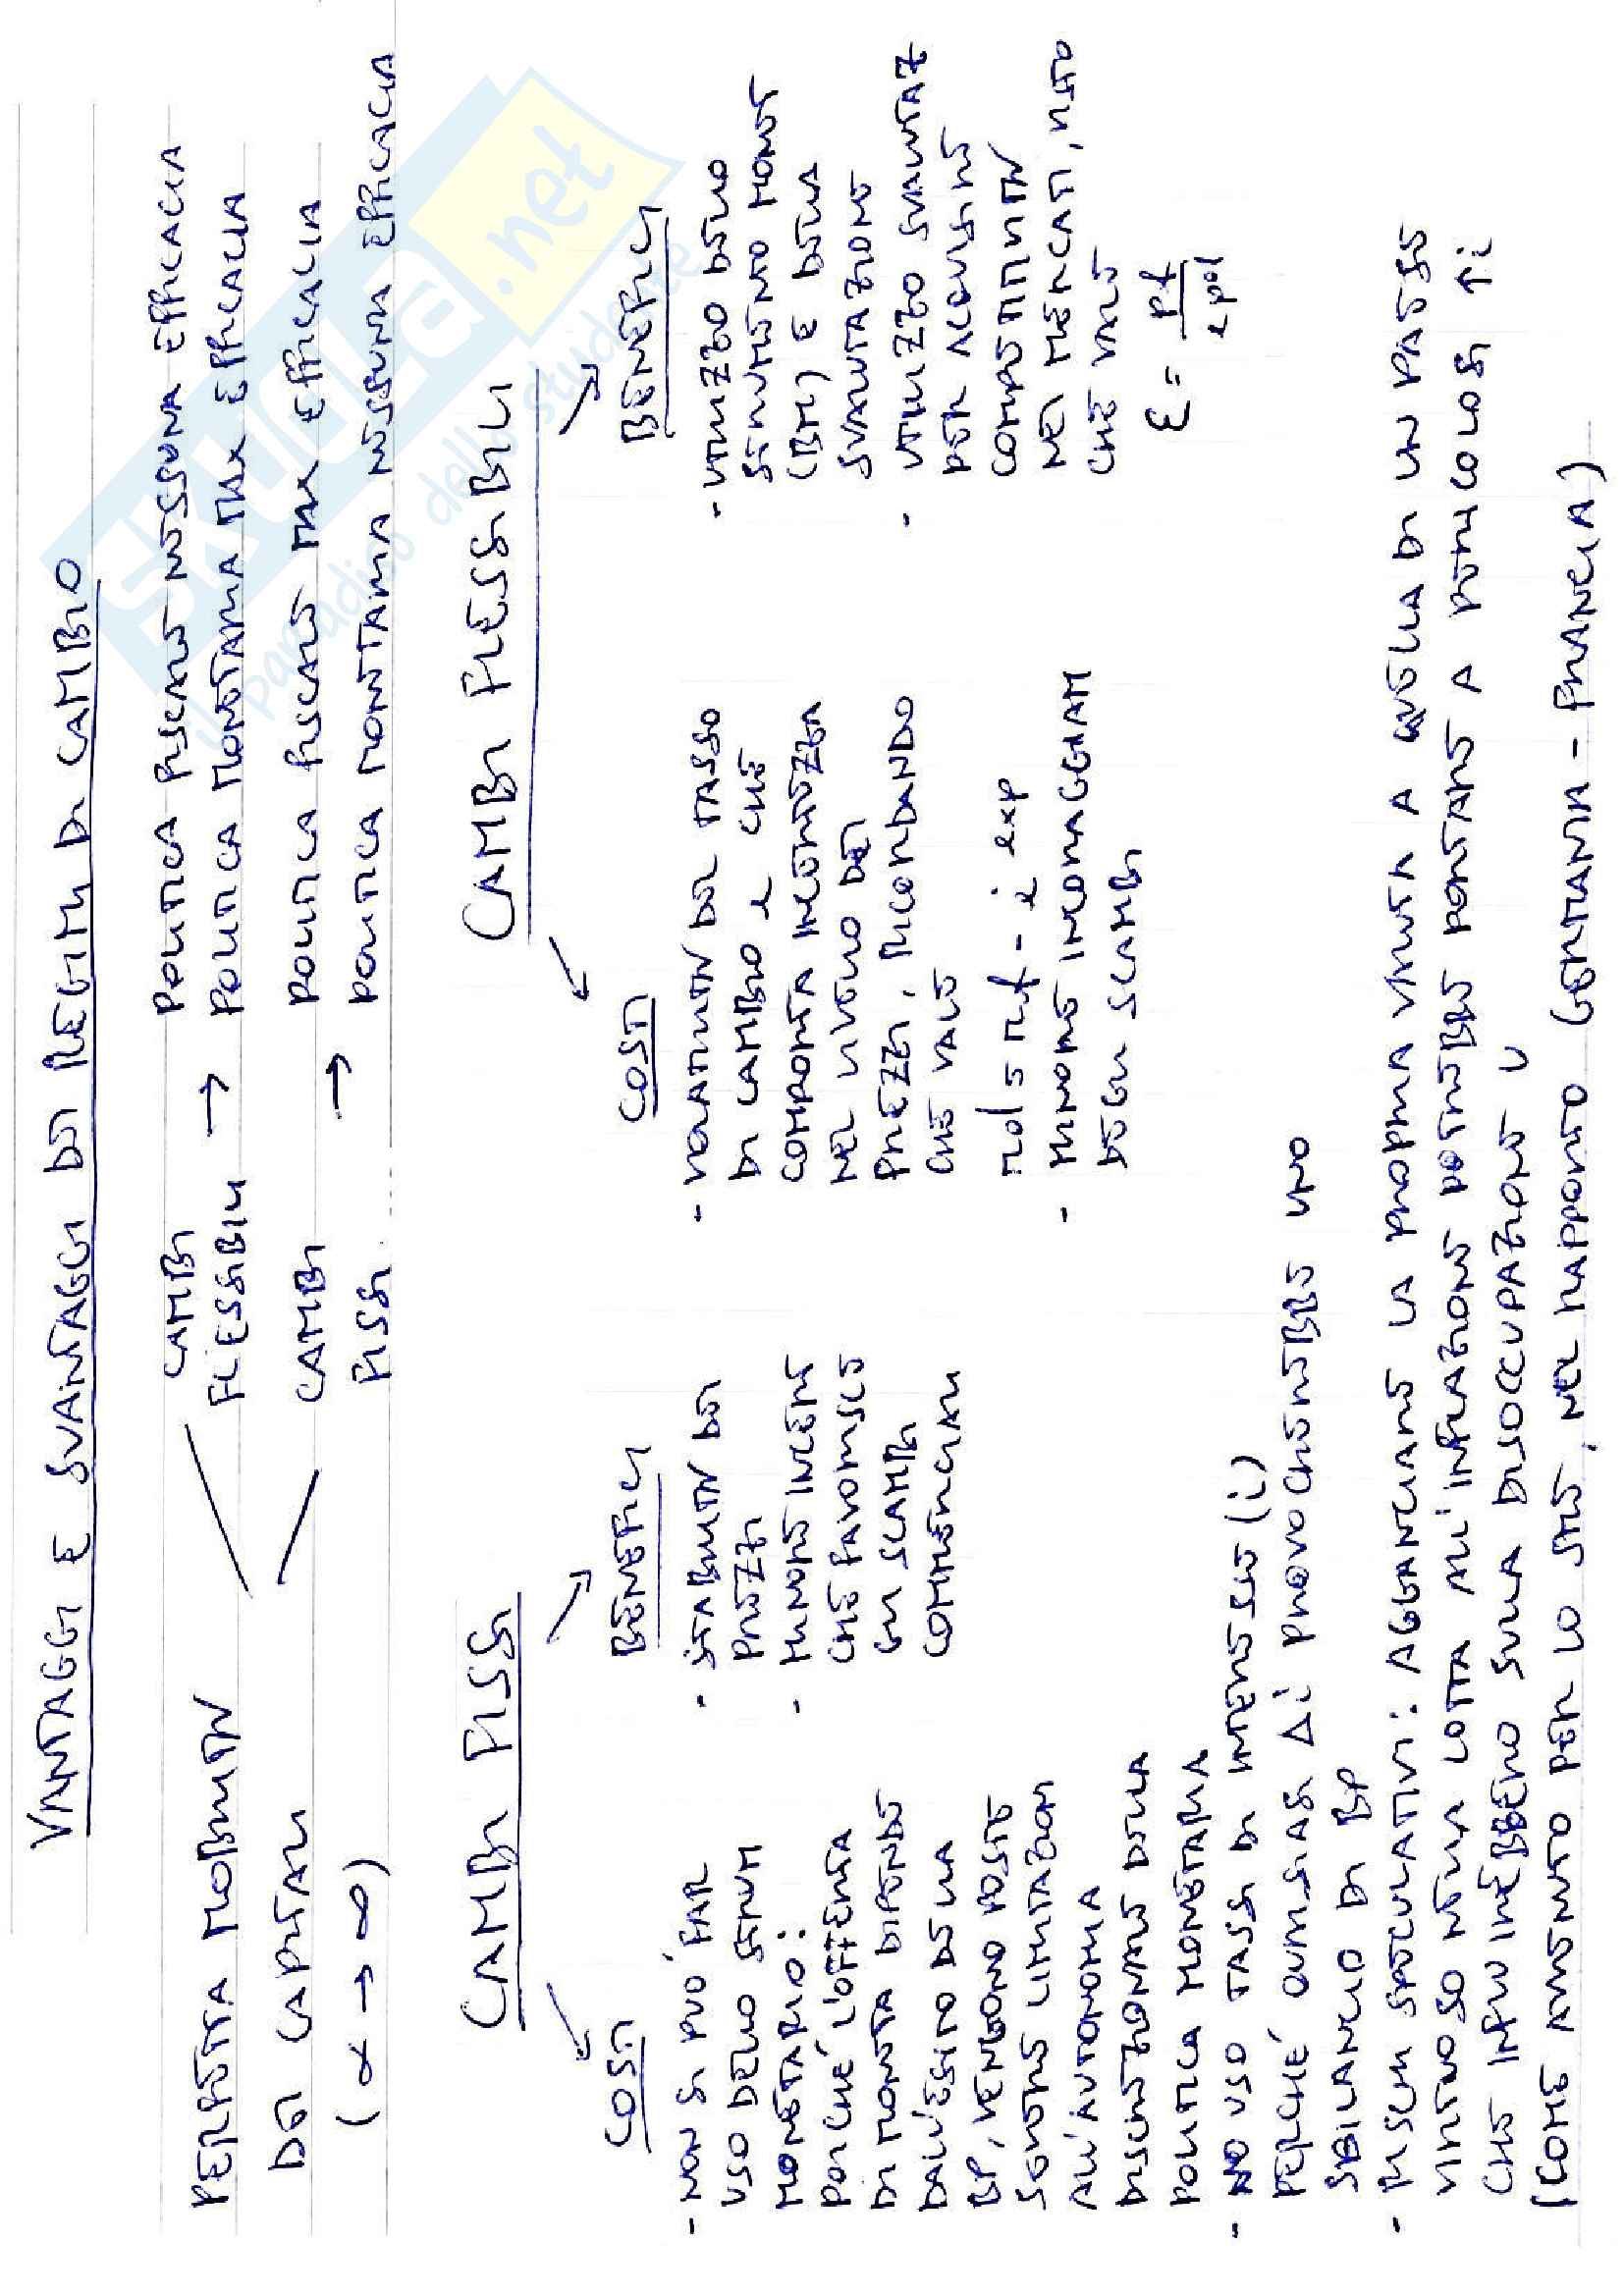 VANTAGGI E SVANTAGGI DEI REGIMI DI CAMBIO
PERFETTA MOBILITÀ
DEI CAPITALI
(α → ∞)
CAMBI
FLESSIBILI →
POLITICA FISCALE NESSUNA EFFICACIA
POLITICA MONETARIA MAX EFFICACIA
CAMBI
FISSI →
POLITICA FISCALE MAX EFFICACIA
POLITICA MONETARIA NESSUNA EFFICACIA
CAMBI FISSI
COSTI
- NON SI PUÒ FAR
USO DELLO STRUM
MONETARIO:
POICHÉ L'OFFERTA
DI MONETA DIPENDE
DALL'ESITO DELLA
BP, VENGONO POSTE
SEVERE LIMITAZIONI
ALL'AUTONOMIA
DISCREZIONALE DELLA
POLITICA MONETARIA
- NO USO TASSI DI INTERESSE (i)
PERCHÉ QUALSIASI Δi PROVOCHEREBBE UNO
SBILANCIO DI BP
- RISCHI SPECULATIVI: AGGANCIARE LA PROPRIA VALUTA A QUELLA DI UN PAESE
VIRTUOSO NELLA LOTTA ALL'INFLAZIONE POTREBBE PORTARE A PERICOLOSI ↑i
CHE INFLUIREBBERO SULLA DISOCCUPAZIONE U
(COME AVVENUTO PER LO SME, NEL RAPPORTO GERMANIA - FRANCIA)
BENEFICI
- STABILITÀ DEI
PREZZI
- MINORE INCERT
CHE FAVORISCE
GLI SCAMBI
COMMERCIALI
CAMBI FLESSIBILI
COSTI
- VOLATILITÀ DEL TASSO
DI CAMBIO e CHE
COMPORTA INCERTEZZA
NEL LIVELLO DEI
PREZZI, RICORDANDO
CHE VALE
- MINORE INCORAGGIAM
DEGLI SCAMBI
BENEFICI
- UTILIZZO DELLO
STRUMENTO MONET
(BM) E DELLA
SVALUTAZIONE
- UTILIZZO SVALUTAZ
PER ACQUISIRE
COMPETITIVITÀ
NEI MERCATI, VISTO
CHE VALE
ε = pf / e pol
SKUOLA.net
il paradiso dello studente